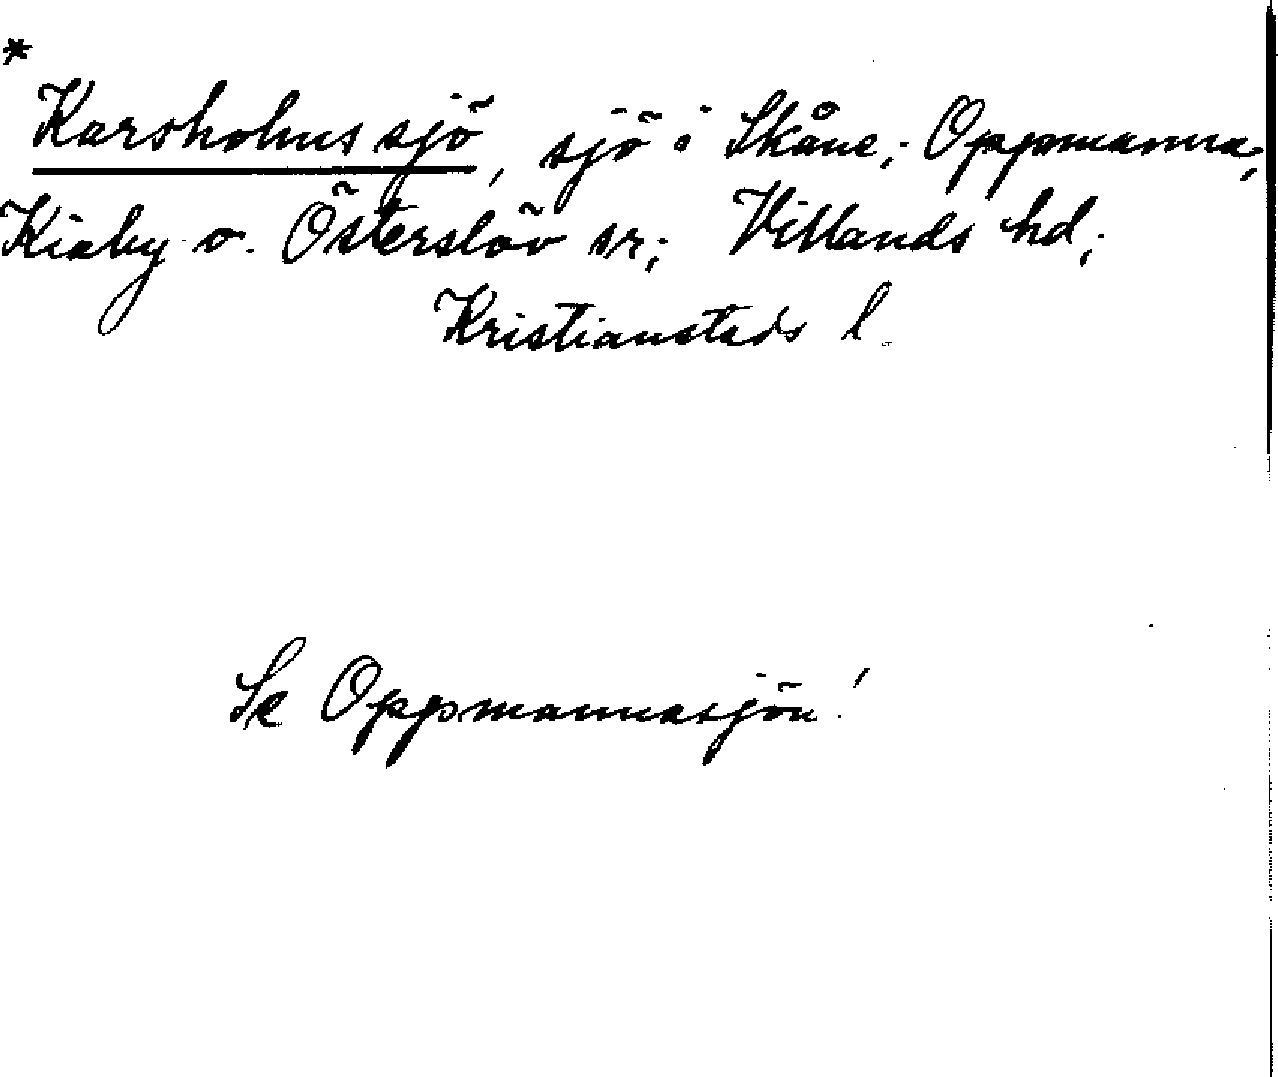 *
Karsholms sjö, sjö i Skåne; Oppmanna,
Kiaby o. Österslöv sr; Villands hd;
Kristianstads l.
Se Oppmannasjön!